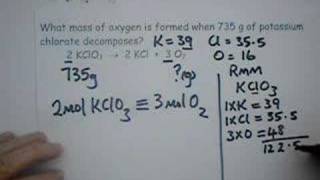 What mass of oxygen is formed when 735 g of potassium
chlorate decomposes? K = 39 Cl = 35.5
2 KClO₃ → 2 KCl + 3 O₂ O = 16
735g ?(g) RMM
KClO₃
2mol KClO₃ ≡ 3mol O₂ 1xK = 39
1xCl = 35.5
3xO = 48
122.5